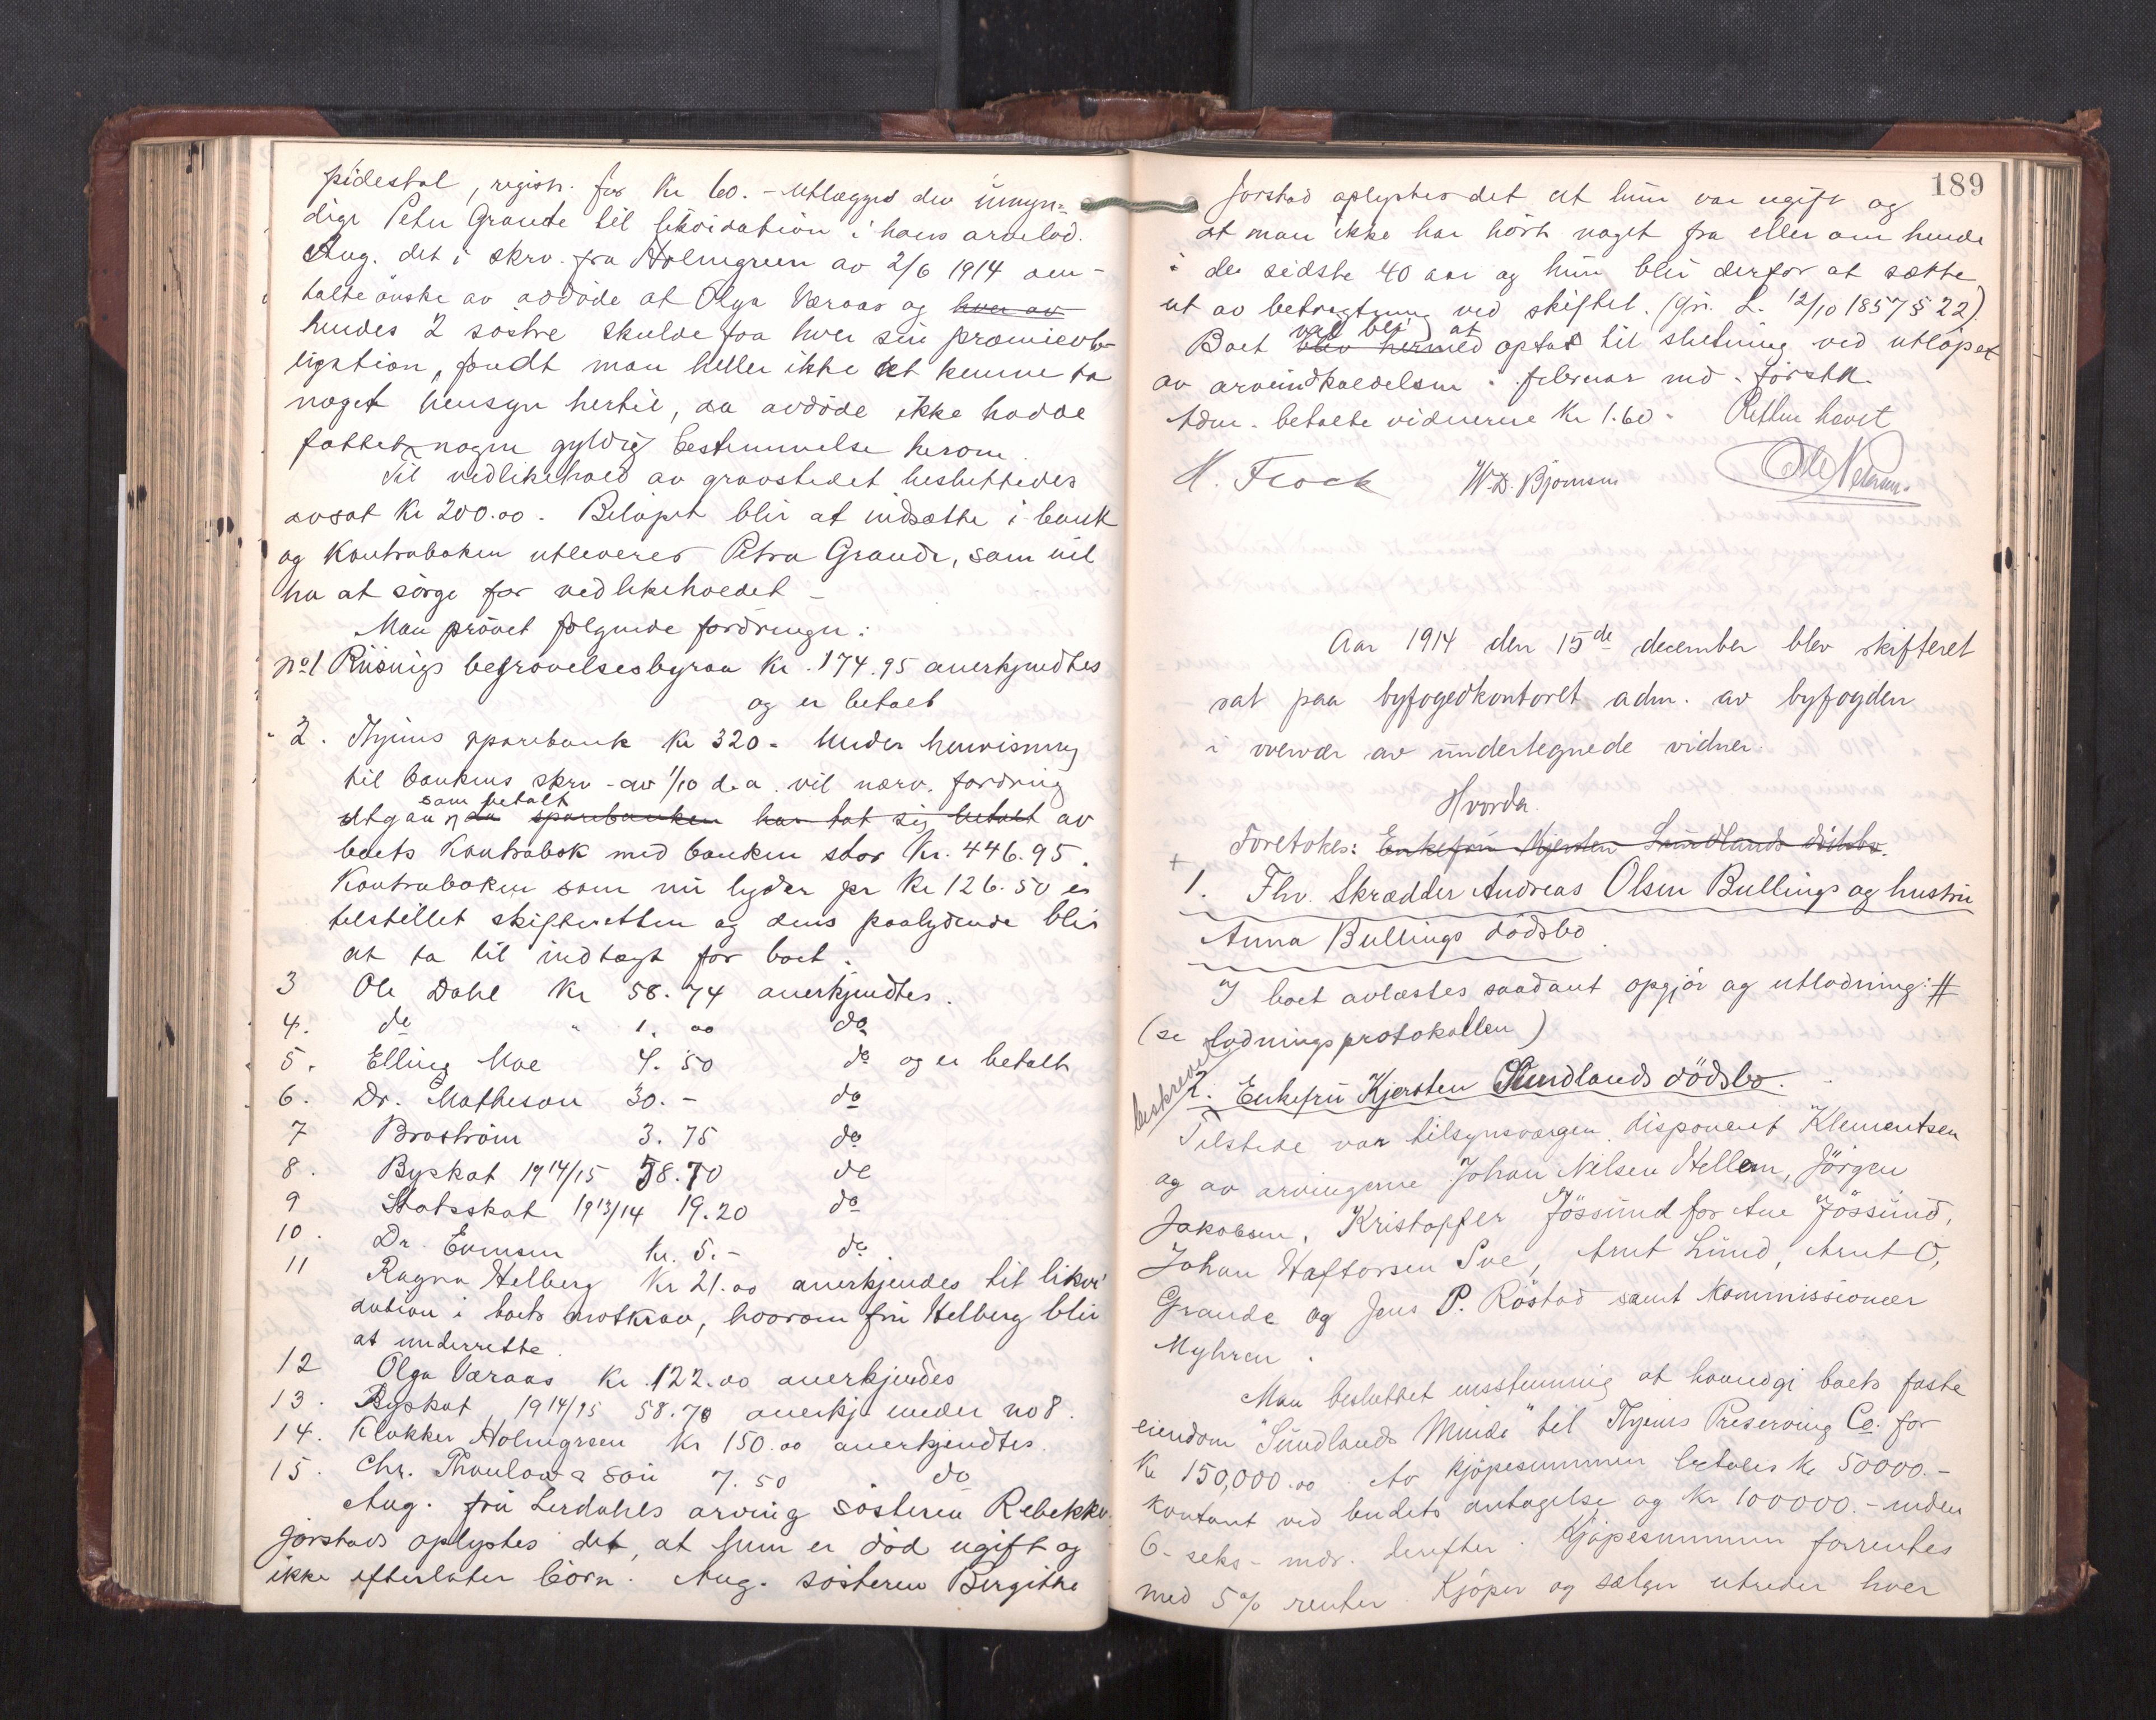 pidestal, registr. for Kr 60.- utlægges den umyn=
dige Peter Grande til likvidation i hans arvelod.
Ang. det i skrv. fra Holmgreen av 2/6 1914 om-
talte önske av avdöde at Olga Væraas og hver av
hendes 2 söstre skulde faa hver sin præmieob-
ligation, fandt man heller ikke at kunne ta
noget hensyn hertil, da avdöde ikke hadde
fattet nogen gyldig bestemmelse herom.
Til vedlikehold av gravstedet besluttedes
avsat Kr 200.00. Belöpet blir at indsætte i bank
og Kontraboken utleveres Petra Grande, som vil
ha at sörge for vedlikeholdet -
Man prövet fölgende fordringer:
No 1 Riisnigs begravelsesbyraa Kr. 174.95 anerkjendtes
og er betalt
" 2. Thjems sparebank Kr 320.- Under henvisning
til bankens skrv. av 1/10 d.a. vil nærv. fordring
som betalt
utgaa da sparebanken har tat sig betalt av
boets Kontrabok med banken stor Kr. 446.95.
Kontraboken som nu lyder pr Kr 126.50 er
tilstillet skifteretten og dens paalydende blir
at ta til indtægt for boet.
3 Ole Dahl Kr 58.74 anerkjendtes.
4. do " 1.00 do
5. Elling Moe 4.50 do og er betalt
6. Dr. Matheson 30.- do
7 Broström 3.75 do
8. Byskat 1914/15 58.70 do
9 Statsskat 1913/14 19.20 do
10. Dr. Evensen kr. 5.- do.
11 Ragna Helberg Kr 21.00 anerkjendes til likvi
dation i boets motkrav, hvorom fru Helberg blir
at underrette.
12 Olga Væraas Kr. 122.00 anerkjendes
13. Byskat 1914/15 58.70 anerkj. under no 8.
14. Klokker Holmgreen Kr 150.00 anerkjendtes.
15. Chr. Thaulow & sön 7.50 do
Ang. fru Lerdahls arving sösteren Rebekka
Jorstads oplystes det, at hun er död ugift og
ikke efterlater börn. Ang. sösteren Birgithe
189
Jorstad oplystes det at hun var ugift og
at man ikke har hört noget fra eller om hende
i de sidste 40 aar og hun blir derfor at sætte
ut av betragtning ved skiftet. (Gfr. L. 12/10 1857 § 22).
vil bli at
Boet blev hermed optat til slutning ved utlöpet
av arveindkaldelsen i februar md. förstk.
Adm. betalte vidnerne Kr 1.60. Retten hævet
H. Flock W.D. Bjørnsen Ole Petersen
Aar 1914 den 15de december blev skifteret
sat paa byfogedkontoret adm. av byfogden
i overvær av undertegnede vidner.
Hvorda
Foretokes: Enkefru Kjersten Sundlands dödsbo.
+ 1. Fhv. Skrædder Andreas Olsen Bullings og hustru
Anna Bullings dödsbo.
I boet avlæstes saadant opgjör og utlodning: #
(se lodningsprotokollen)
beskrevet
2. Enkefru Kjersten Sundlands dödsbo.
Tilstede var tilsynsværgen disponent Klementsen
og av arvingerne Johan Nilsen Hellem, Jörgen
Jakobsen, Kristoffer Jössund for Ane Jössund,
Johan Haftorsen Sve, Arnt Lund, Arnt O.
Grande og Jens P. Röstad samt Kommissionær
Myhren.
Man besluttet enstemmig at haandgi boets faste
eiendom "Sundlands Minde" til Thjems Preserving Co. for
Kr 150,000.00. Av kjöpesummen betales Kr 50000.-
kontant ved budets antagelse og Kr. 100000.- inden
6- seks- mdr. derefter. Kjöpesummen forrentes
med 5% renter. Kjöper og sælger utreder hver